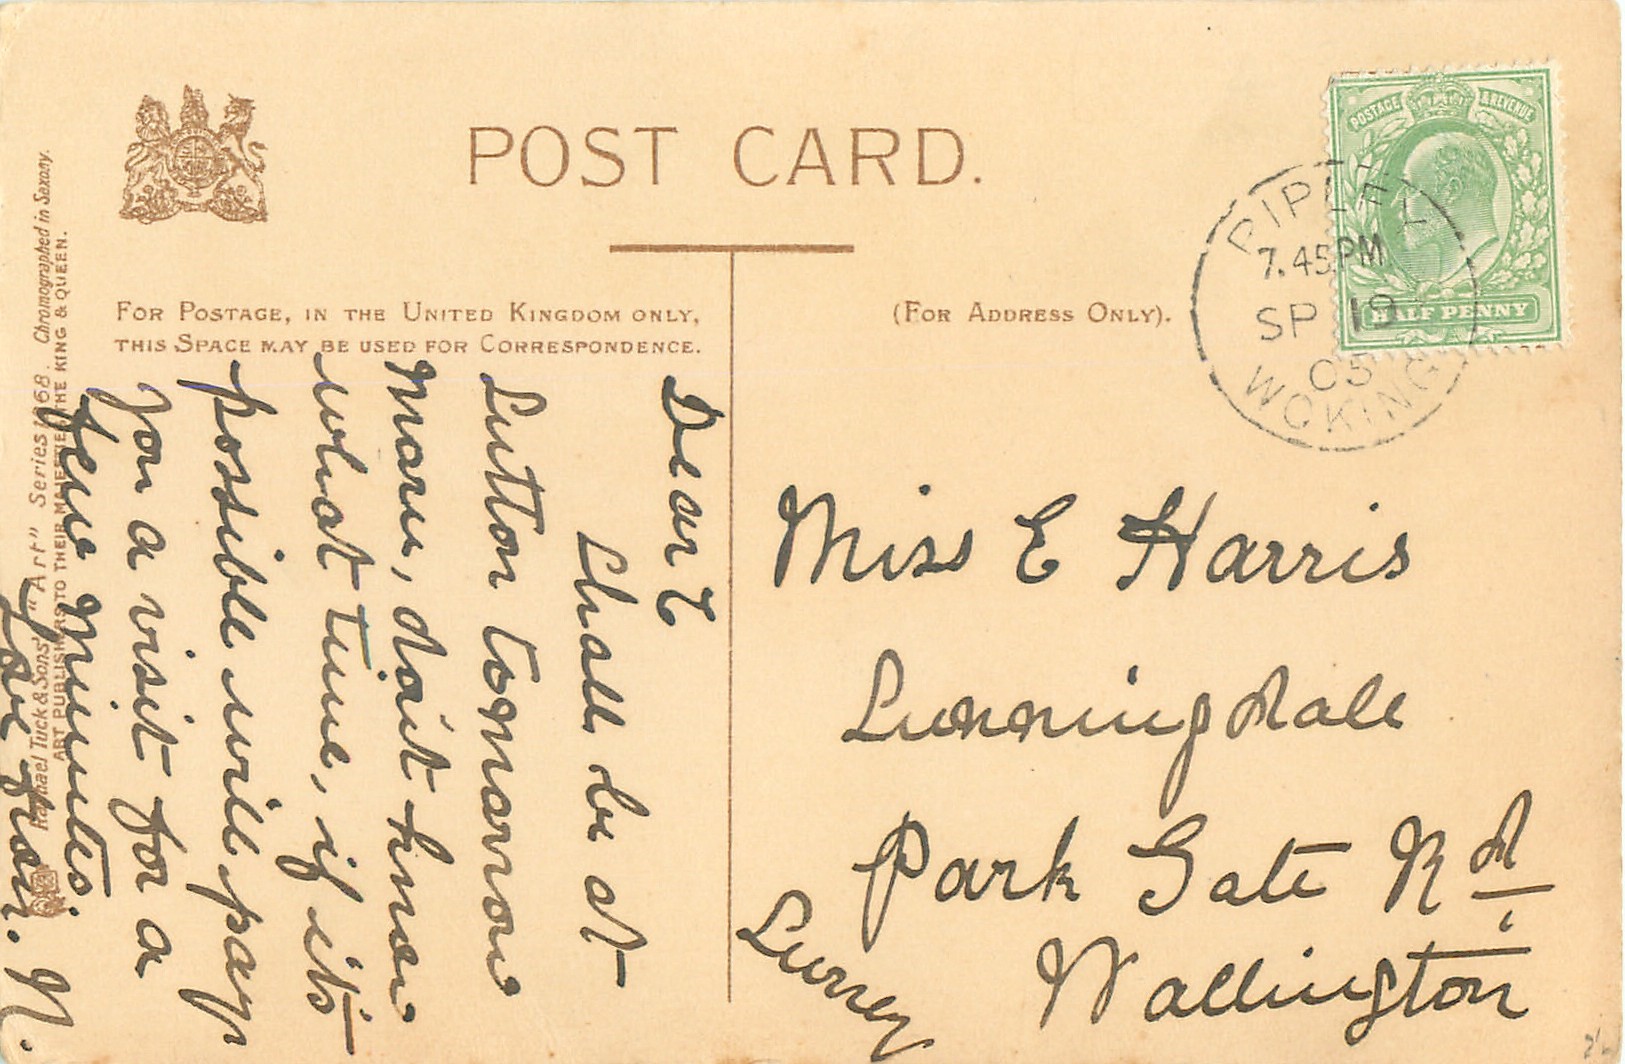 POST CARD.
FOR POSTAGE, IN THE UNITED KINGDOM ONLY,
THIS SPACE MAY BE USED FOR CORRESPONDENCE.
(FOR ADDRESS ONLY).
POSTAGE & REVENUE
HALF PENNY
RIPLEY
7.45PM
SP 19
05
WOKING
Dear E
Shall be at
Sutton tomorrow
Morn, don't know
what time, if its
possible will pay
you a visit for a
few minutes.
Love from. N.
Miss E Harris
Sunningdale
Park Gate Rd
Wallington
Surrey
Raphael Tuck & Sons' "Art" Series 1968. Chromographed in Saxony.
ART PUBLISHERS TO THEIR MAJESTIES THE KING & QUEEN.